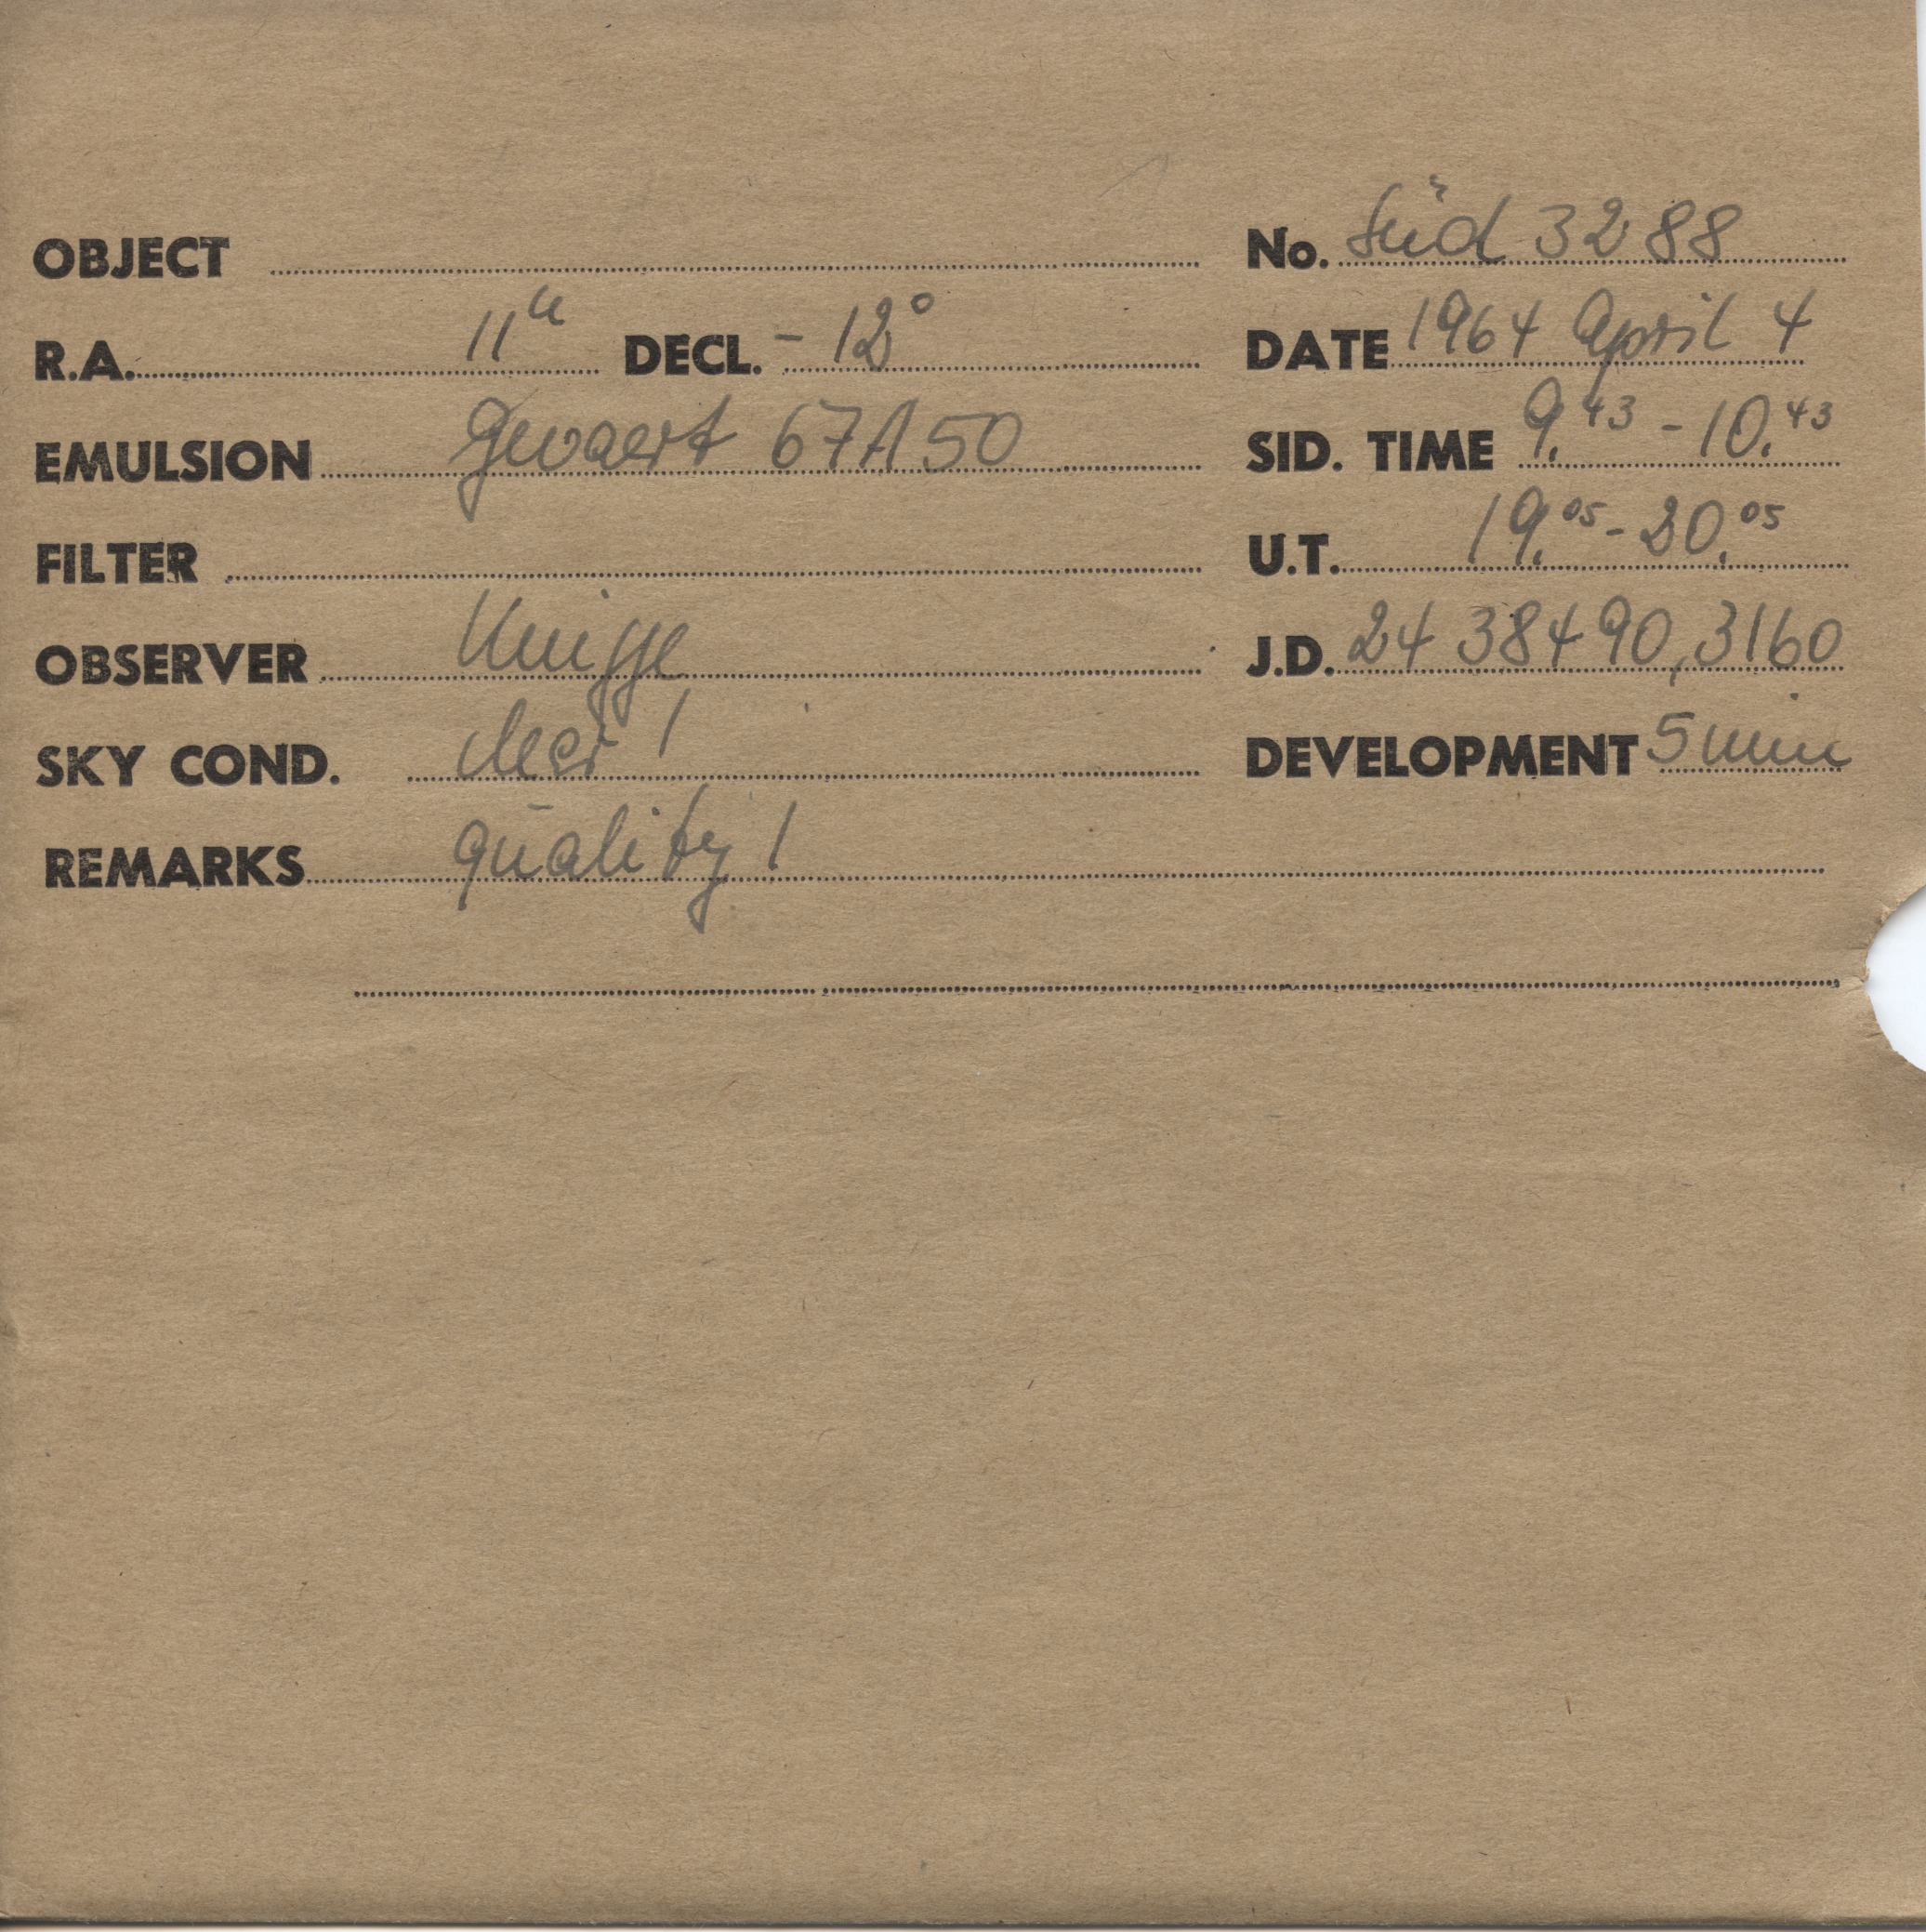 OBJECT No. Süd 3288
R.A. 11h DECL. - 12° DATE 1964 April 4
EMULSION Gevaert 67A50 SID. TIME 9.43 - 10.43
FILTER U.T. 19.05 - 20.05
OBSERVER Knigge J.D. 24 38490,3160
SKY COND. clear 1 DEVELOPMENT 5 min
REMARKS quality 1